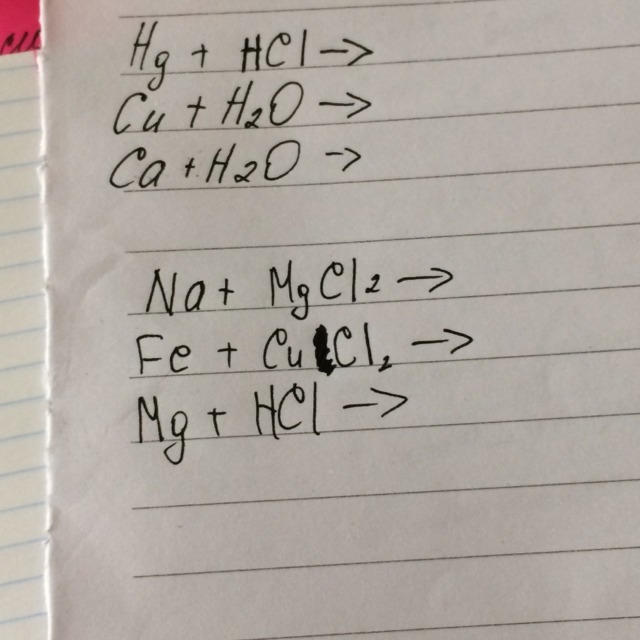 Hg + HCl →
Cu + H₂O →
Ca + H₂O →
Na + MgCl₂ →
Fe + CuCl₂ →
Mg + HCl →